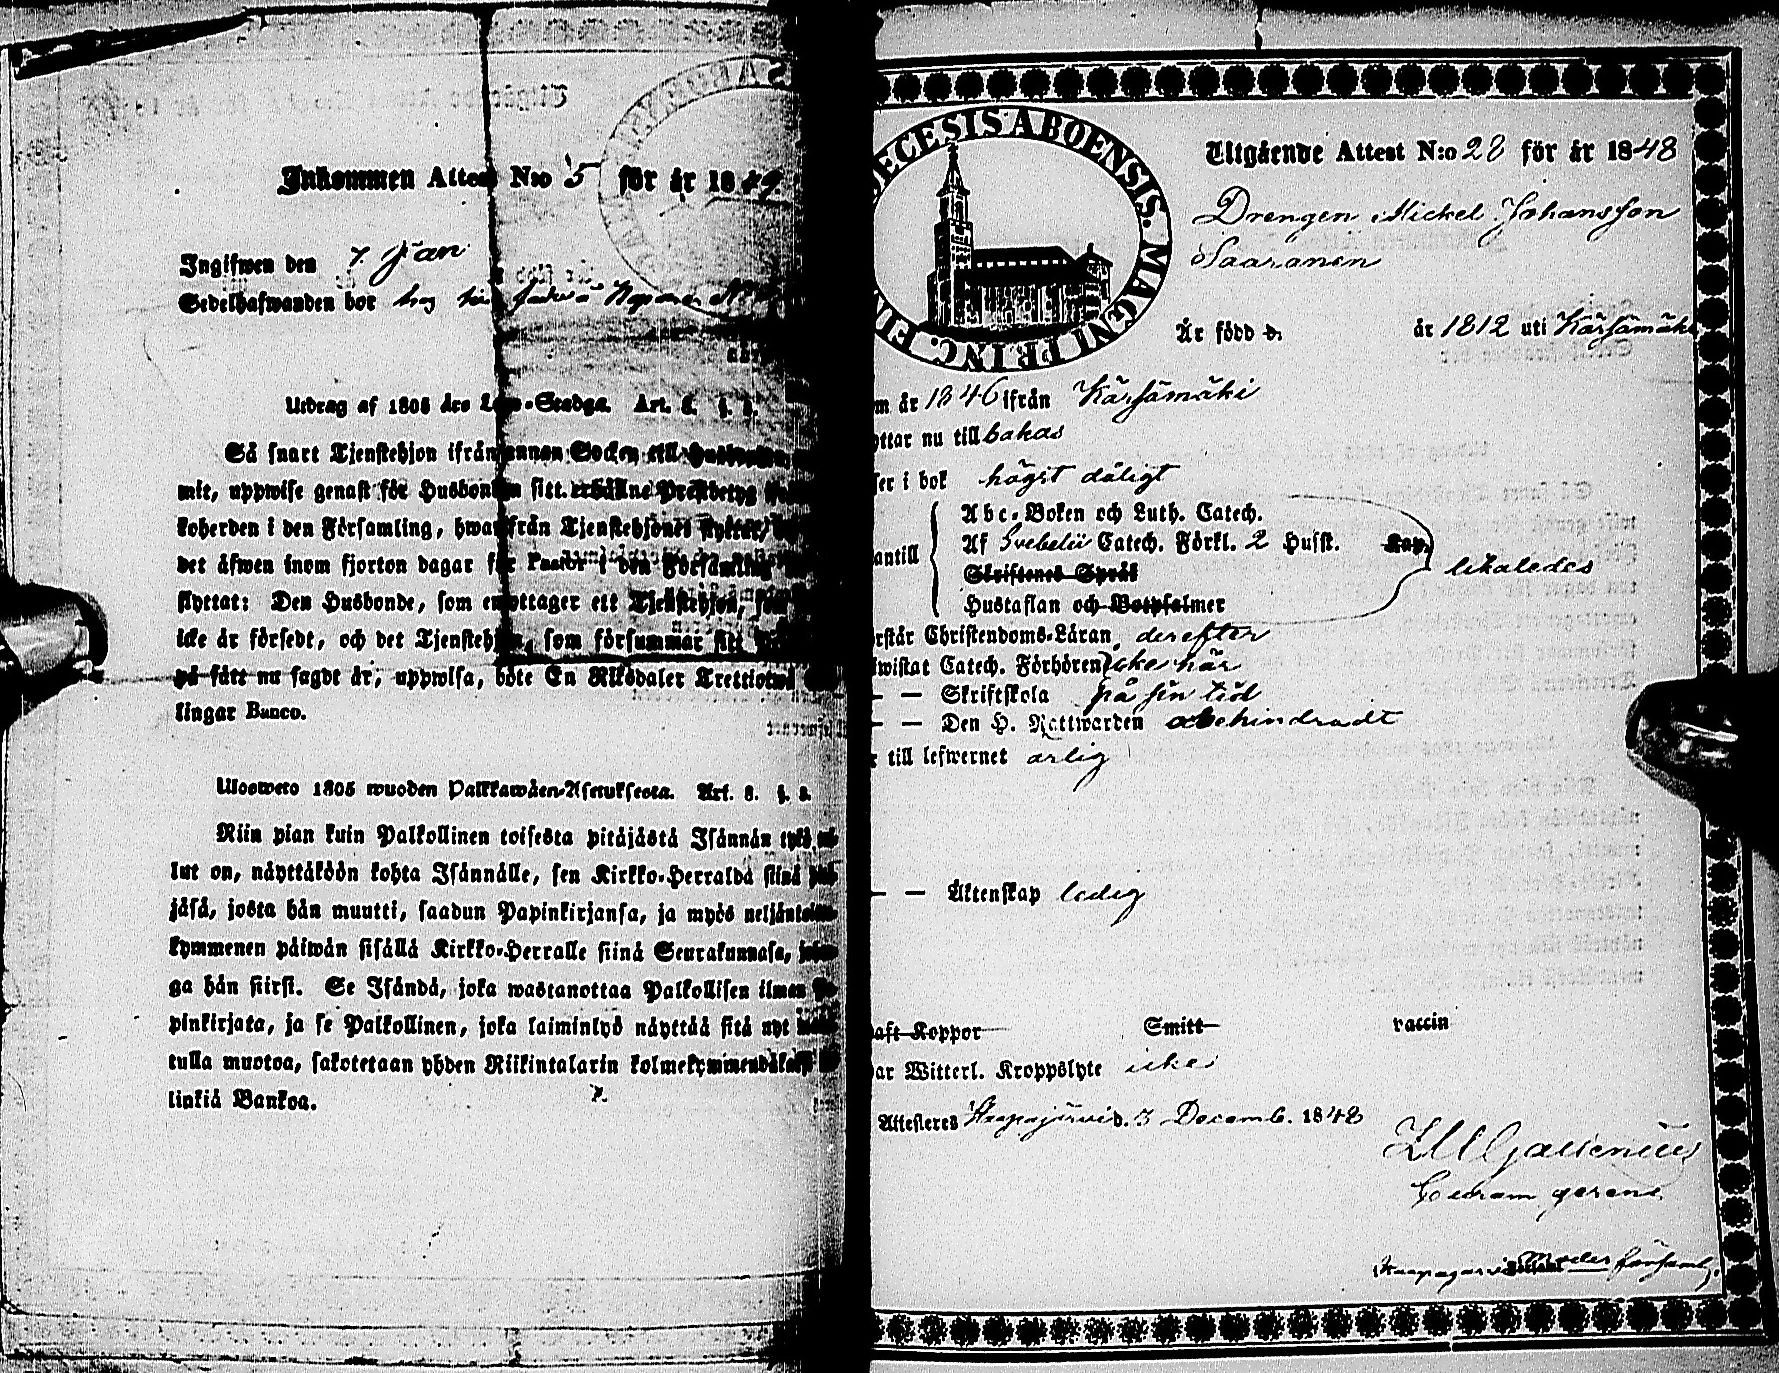 Inkommen Attest N:o 5 för år 1849
Ingifwen den 7 Jan
Sedelhafwanden bor hos
Utdrag af 1805 års Lego-Stadga. Art. 8. §. 8.
Så snart Tjenstehjon ifrån annan Socken till Husbonden
mit, uppwise genast för Husbonden sitt erhållne Prestbetyg
koherden i den Församling, hwarifrån Tjenstehjonet flyttat,
det äfwen inom fjorton dagar för Pastor i den Församling
flyttat: Den Husbonde, som emottager ett Tjenstehjon, som
icke är försedt, och det Tjenstehjon, som försummar sitt
på sätt nu sagdt är, uppwisa, böte En Riksdaler Trettiotwå
lingar Banco.
Ulosweto 1805 wuoden Palkkawäen-Asetuksesta. Art. 8. §. 8.
Niin pian kuin Palkollinen toisesta pitäjästä Isännän tykö
lut on, näyttäköön kohta Isännälle, sen Kirkko-Herralda siinä
jäsä, josta hän muutti, saadun Papinkirjansa, ja myös neljäntoista
kymmenen päiwän sisällä Kirkko-Herralle siinä Seurakunnasa,
ga hän siirsi. Se Isändä, joka wastanottaa Palkollisen ilman
pinkirjata, ja se Palkollinen, joka laiminlyö näyttää sitä nyt
tulla muotoa, sakotetaan yhden Riikintalarin kolmekymmendäkaksi
linkiä Bankoa.
DIECESIS ABOENSIS. MAGNI PRINC. FIN
Utgående Attest N:o 28 för år 1848
Drengen Mickel Johansson
Saaranen
Är född d. år 1812 uti Kärsämäki
m år 1846 ifrån Kärsämäki
ottar nu till bakas
ser i bok högst dåligt
Abc-Boken och Luth. Catech.
antill Af Svebelii Catech. Förkl. 2 Husst. Kap. likaledes
Skriftenes Språk
Hustaflan och Botpsalmer
rstår Christendoms-Läran derefter
wistat Catech. Förhören icke här
— — Skriftskola på sin tid
— — Den H. Nattwarden obehindradt
r till lefwernet ärlig
— — Äktenskap ledig
aft Koppor Smitt vaccin
ar Witterl. Kroppslyte icke
Attesteras Haapajärvi d. 3 Decemb. 1848
Gallenius
Curam gerens
Haapajärvi Moder församl.